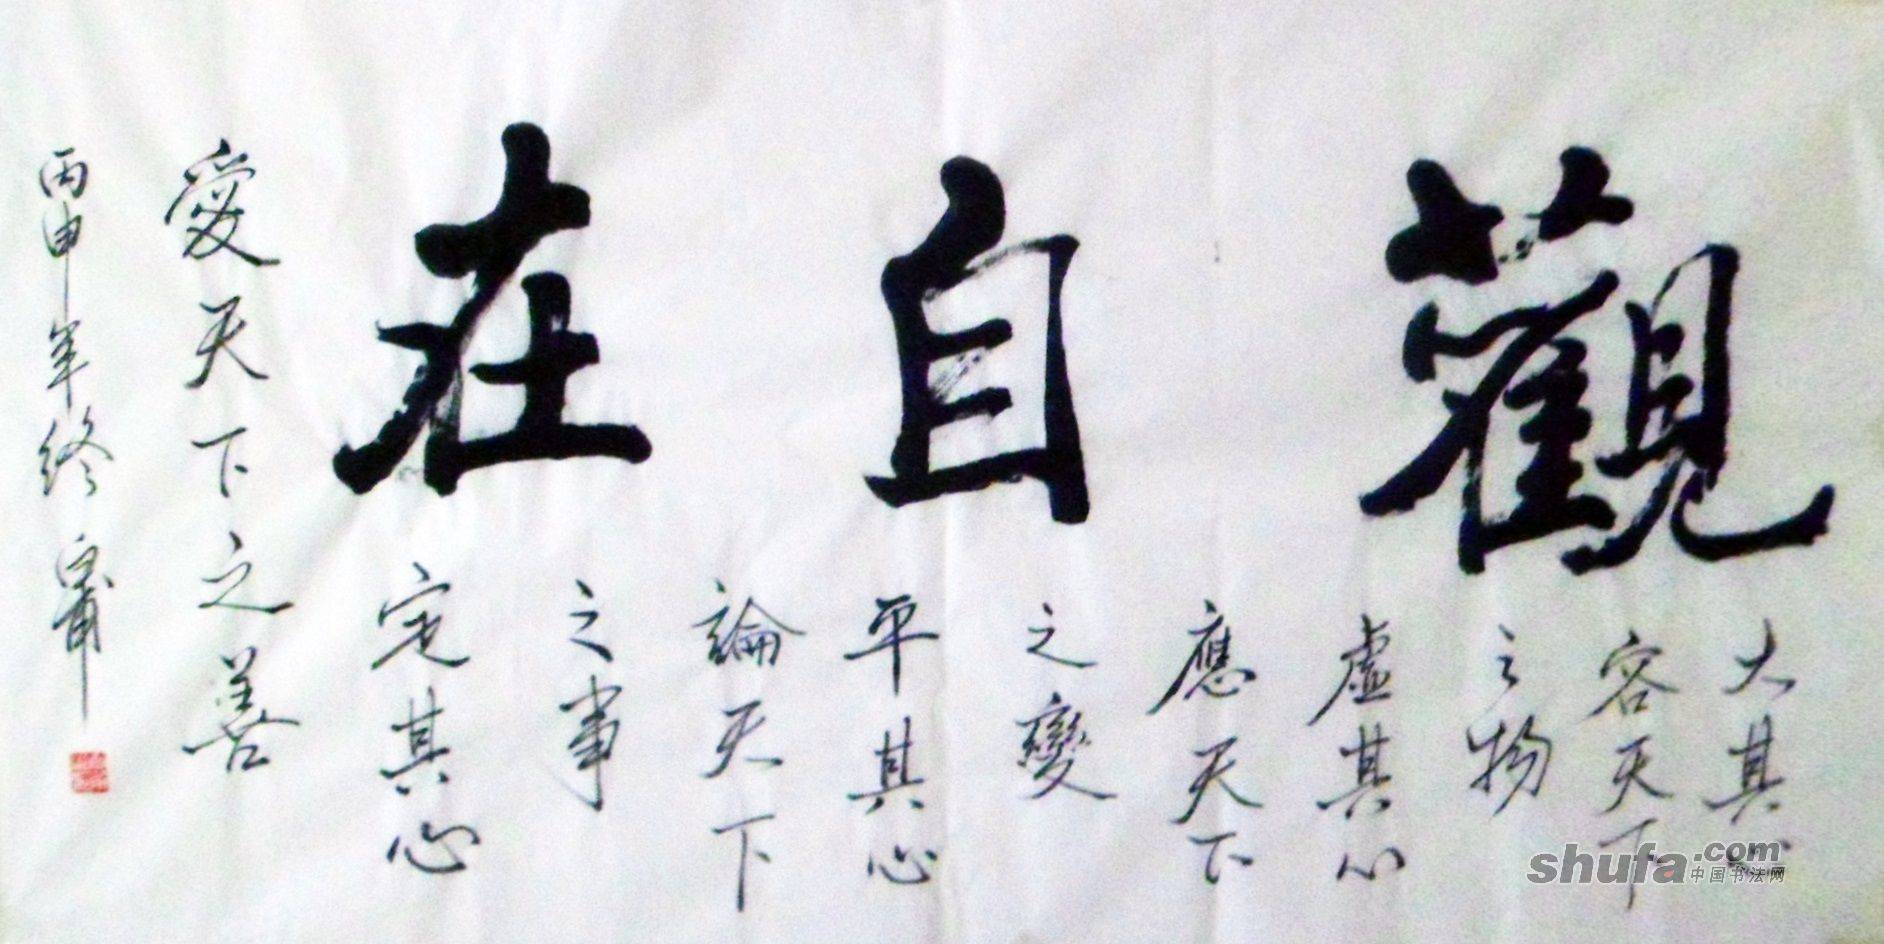 觀自在
大其心
容天下
之物
虛其心
應天下
之變
平其心
論天下
之事
定其心
愛天下之善
丙申年終
shufa.com
中国书法网